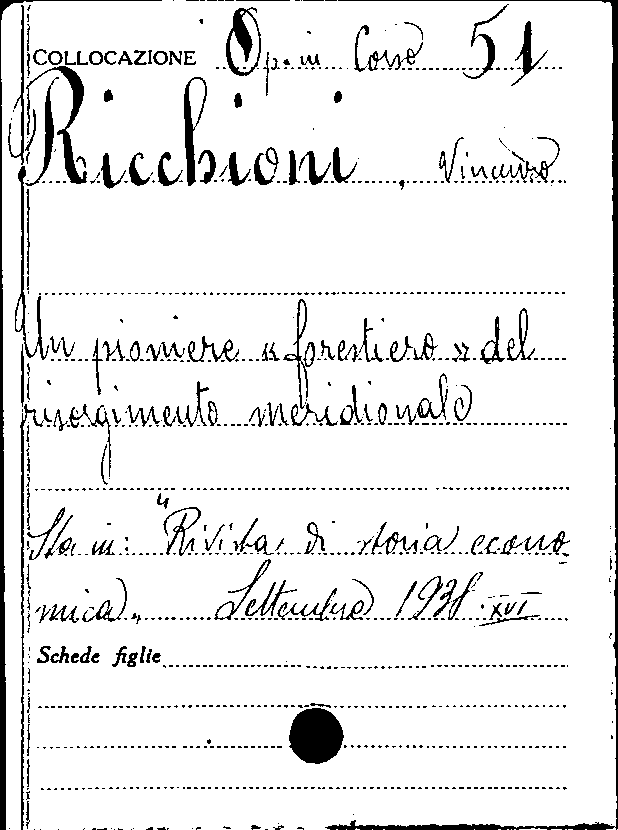 COLLOCAZIONE Op. in Corso 51
Ricchioni, Vincenzo
Un pioniere « forestiero » del
risorgimento meridionale
Sta in: "Rivista di storia econo-
mica„ Settembre 1938.XVI
Schede figlie